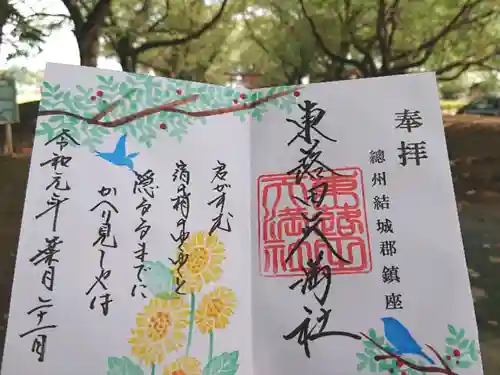 奉拝
總州結城郡鎮座
東蕗田天満社
東蕗田天満社
君がすむ
宿の梢のゆくゆくと
隠るるまでに
かへり見しやは
令和元年 葉月二十一日